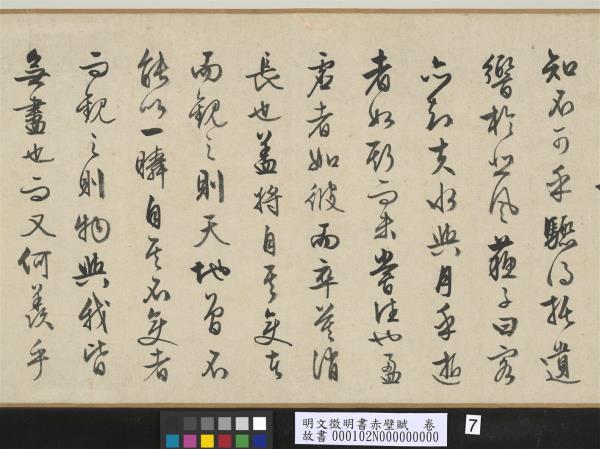 知不可乎驟得托遺
響於悲風蘇子曰客
亦知夫水與月乎逝
者如斯而未嘗往也盈
虛者如彼而卒莫消
長也蓋將自其變者
而觀之則天地曾不
能以一瞬自其不變者
而觀之則物與我皆
無盡也而又何羨乎
明文徵明書赤壁賦　卷
故書 000102N000000000
7